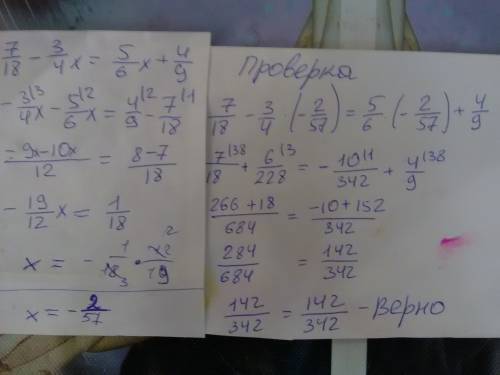 7/18 - 3/4 x = 5/6 x + 4/9
- 3/4 x |3 - 5/6 x |2 = 4/9 |2 - 7/18 |1
= -9x-10x/12 = 8-7/18
- 19/12 x = 1/18
x = - 1/18 3 · 12 2/19
x = - 2/57
Проверка
7/18 - 3/4 · (- 2/57) = 5/6 · (- 2/57) + 4/9
7/18 |38 + 6/228 |3 = - 10/342 |1 + 4/9 |38
266 + 18/684 = -10 + 152/342
284/684 = 142/342
142/342 = 142/342 - верно